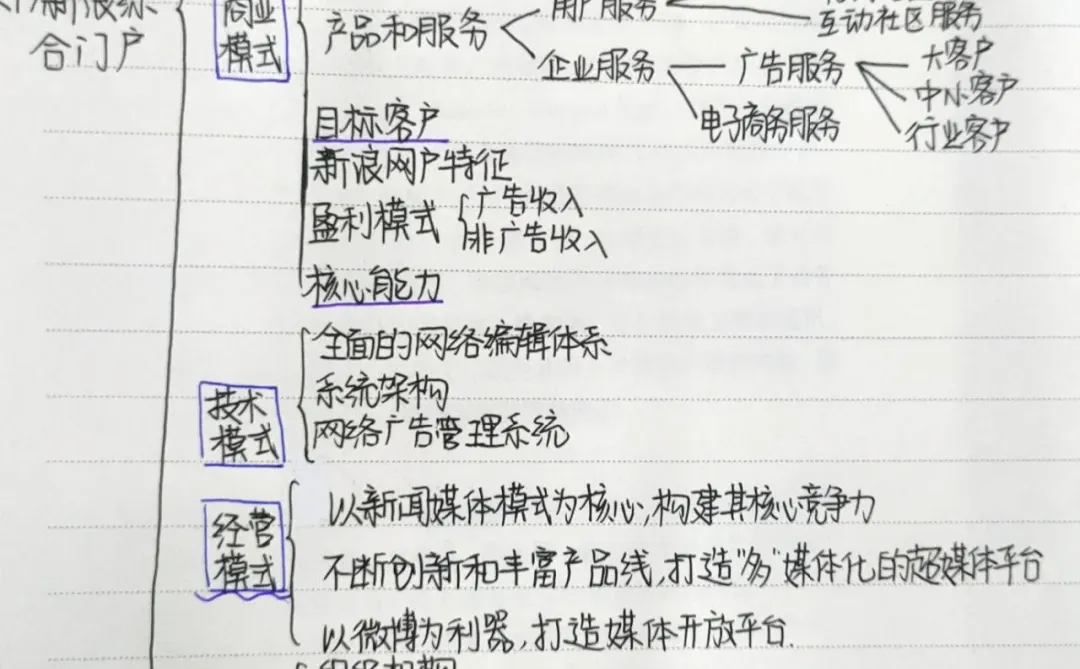 合门户
商业
模式
产品和服务
用户服务
互动社区服务
企业服务
广告服务
大客户
中小客户
行业客户
电子商务服务
目标客户
新浪网户特征
盈利模式
广告收入
非广告收入
核心能力
技术
模式
全面的网络编辑体系
系统架构
网络广告管理系统
经营
模式
以新闻媒体模式为核心,构建其核心竞争力
不断创新和丰富产品线,打造"多"媒体化的超媒体平台
以微博为利器,打造媒体开放平台.